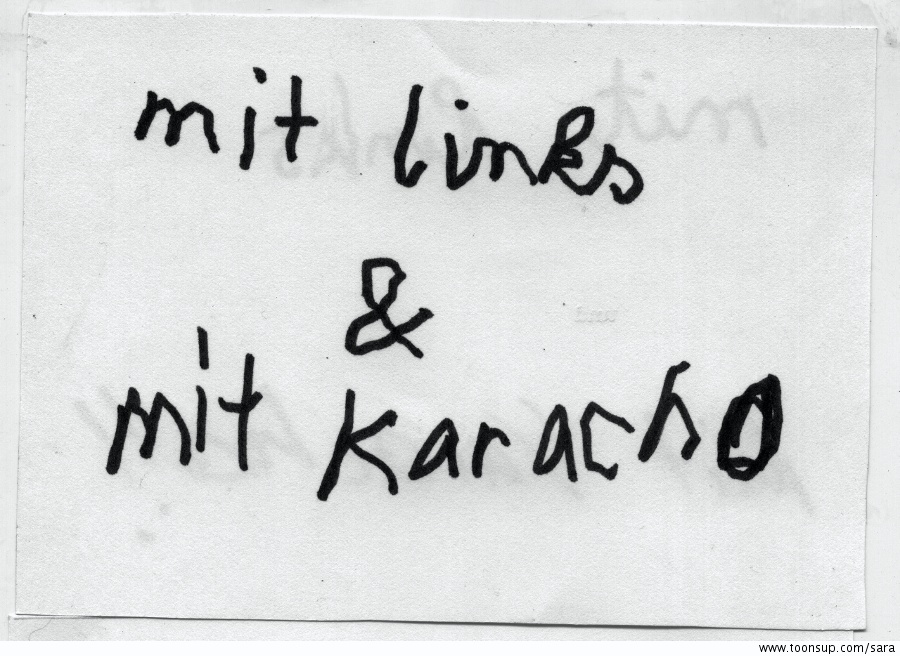 mit links
&
mit Karacho
www.toonsup.com/sara